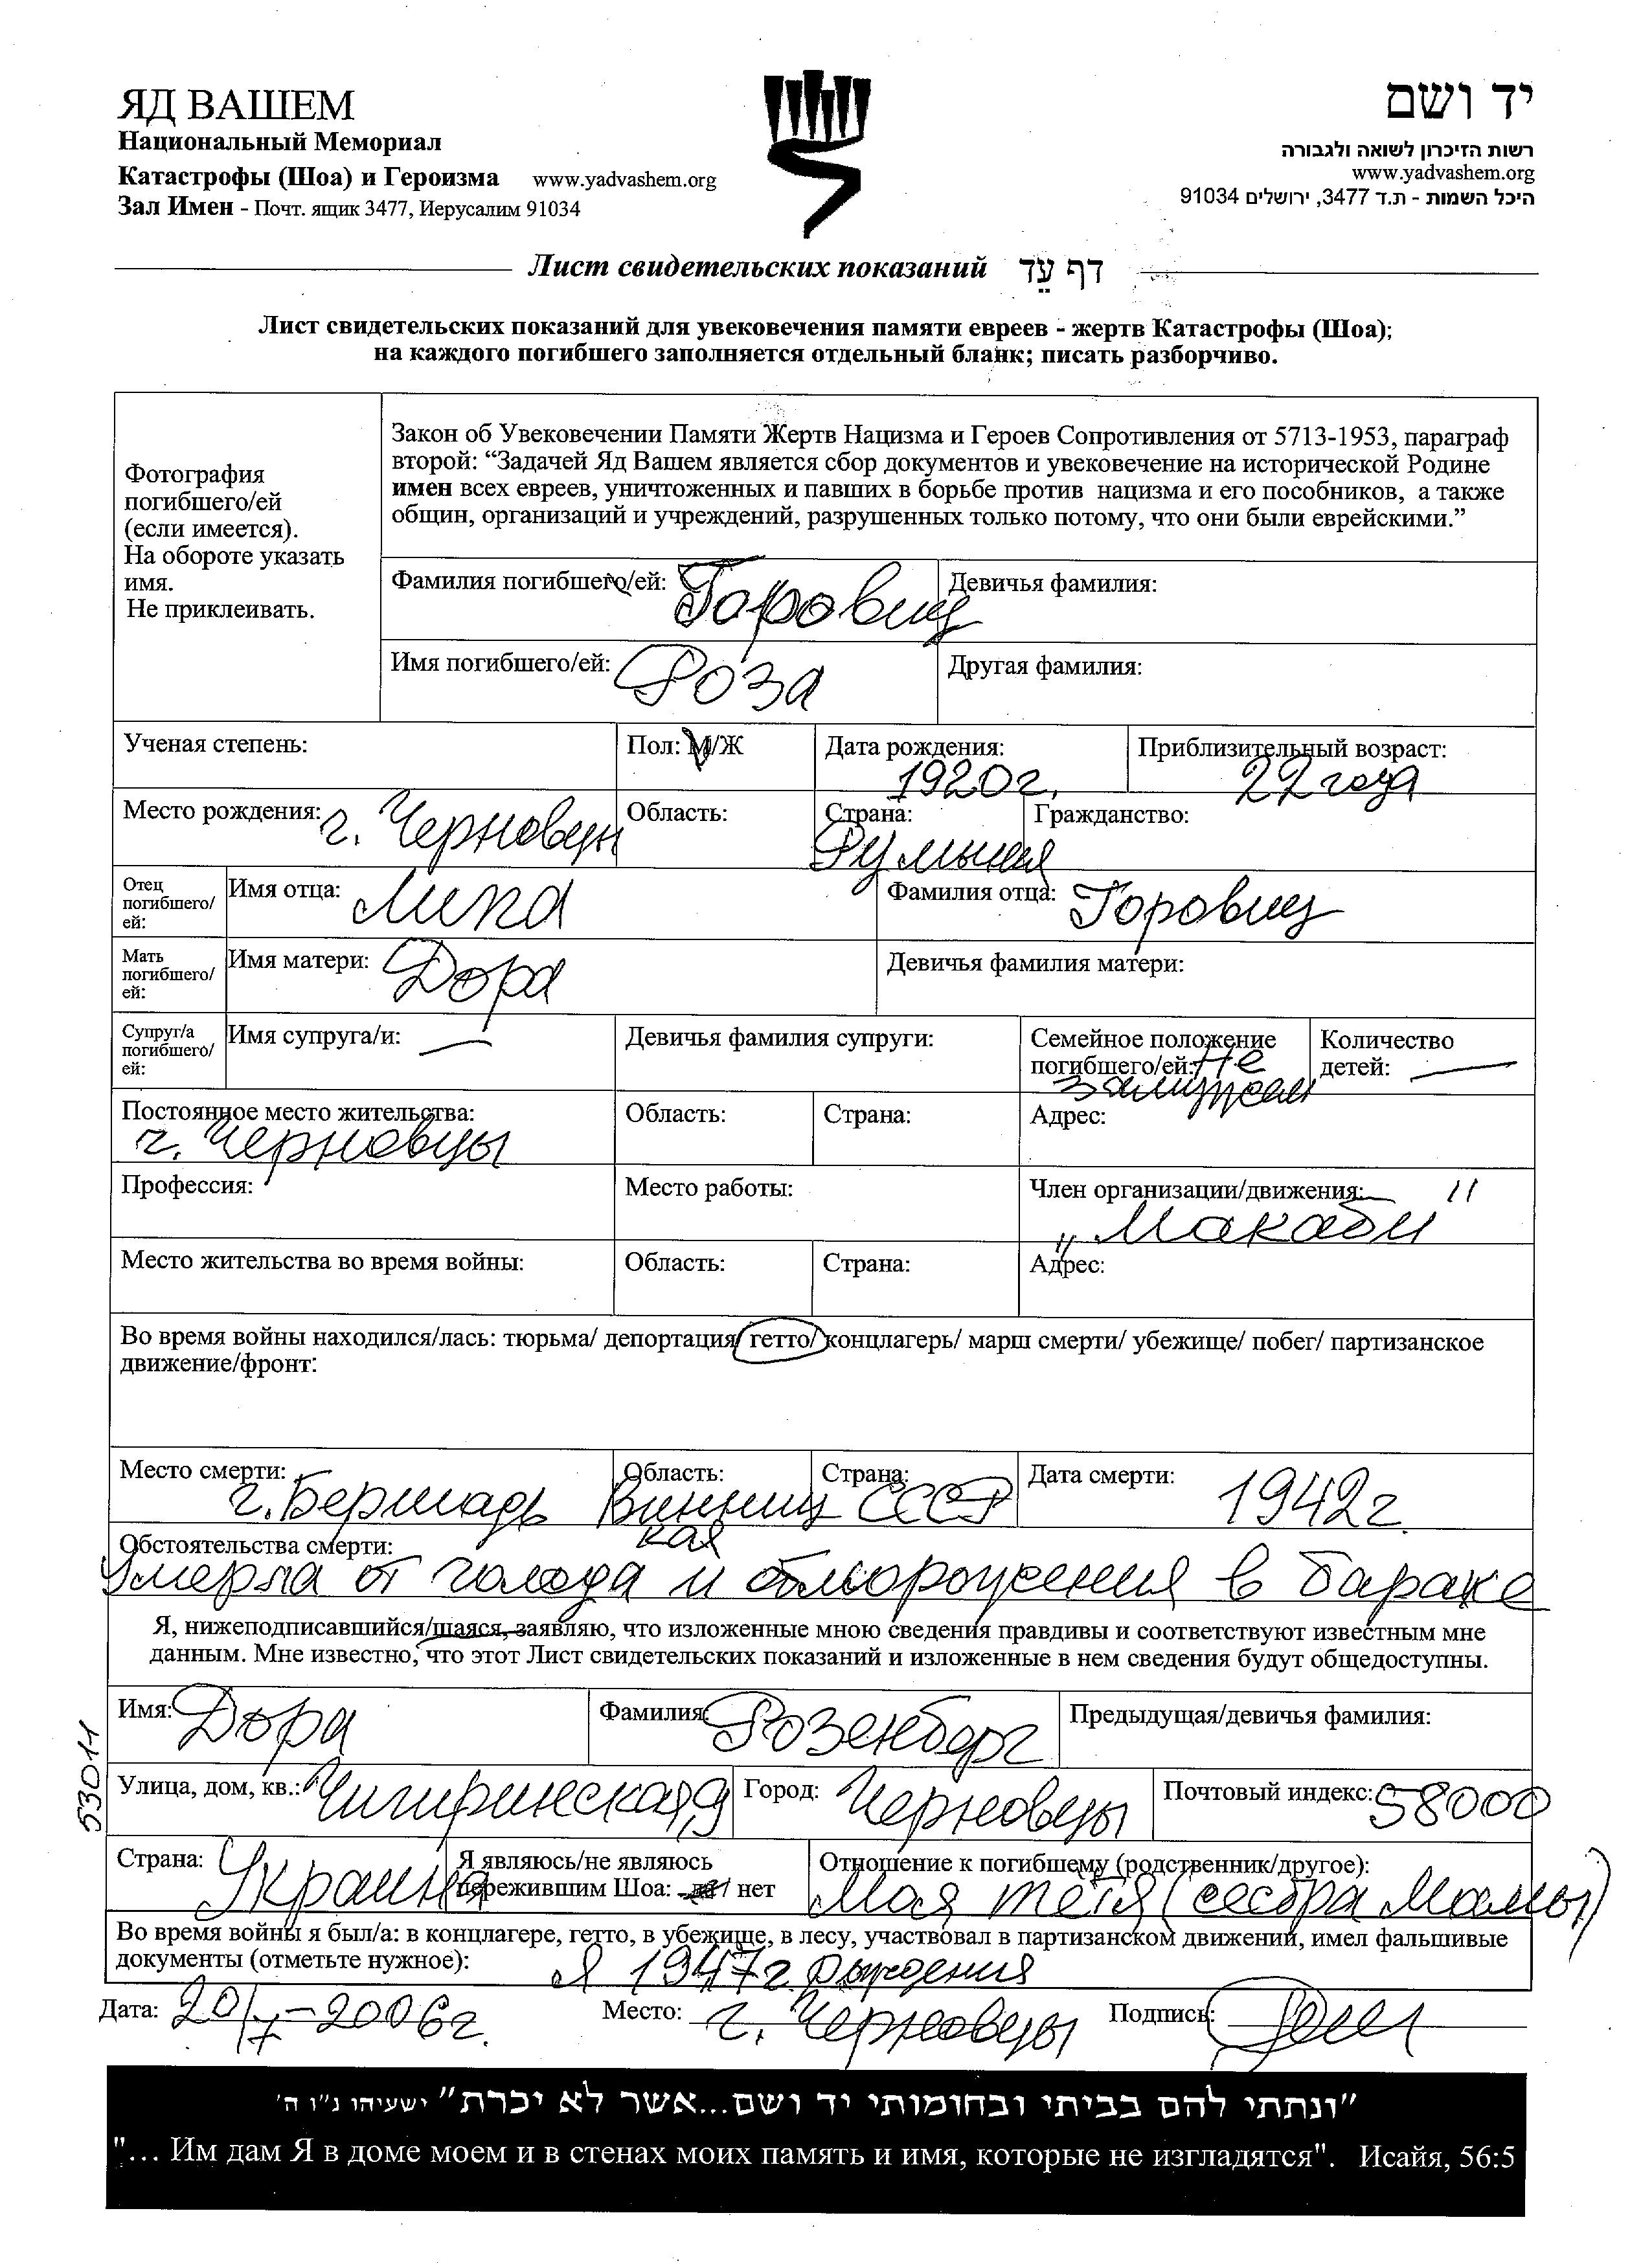 ЯД ВАШЕМ
Национальный Мемориал
Катастрофы (Шоа) и Героизма www.yadvashem.org
Зал Имен - Почт. ящик 3477, Иерусалим 91034
יד ושם
רשות הזיכרון לשואה ולגבורה
www.yadvashem.org
היכל השמות - ת.ד 3477, ירושלים 91034
Лист свидетельских показаний דף עֵד
Лист свидетельских показаний для увековечения памяти евреев - жертв Катастрофы (Шоа);
на каждого погибшего заполняется отдельный бланк; писать разборчиво.
Фотография
погибшего/ей
(если имеется).
На обороте указать
имя.
Не приклеивать.
Закон об Увековечении Памяти Жертв Нацизма и Героев Сопротивления от 5713-1953, параграф
второй: “Задачей Яд Вашем является сбор документов и увековечение на исторической Родине
имен всех евреев, уничтоженных и павших в борьбе против нацизма и его пособников, а также
общин, организаций и учреждений, разрушенных только потому, что они были еврейскими.”
Фамилия погибшего/ей: Горовиц Девичья фамилия:
Имя погибшего/ей: Роза Другая фамилия:
Ученая степень: Пол: М/Ж Дата рождения: 1920г. Приблизительный возраст: 22 года
Место рождения: г. Черновцы Область: Страна: Румыния Гражданство:
Отец погибшего/ей: Имя отца: Липа Фамилия отца: Горовиц
Мать погибшего/ей: Имя матери: Дора Девичья фамилия матери:
Супруг/а погибшего/ей: Имя супруга/и: — Девичья фамилия супруги: Семейное положение погибшего/ей: Не замужем Количество детей: —
Постоянное место жительства: г. Черновцы Область: Страна: Адрес:
Профессия: Место работы: Член организации/движения: „Макаби"
Место жительства во время войны: Область: Страна: Адрес:
Во время войны находился/лась: тюрьма/ депортация/ гетто/ концлагерь/ марш смерти/ убежище/ побег/ партизанское
движение/фронт:
Место смерти: г. Бершадь Область: Винницкая Страна: СССР Дата смерти: 1942г.
Обстоятельства смерти:
Умерла от голода и обморожения в бараке
Я, нижеподписавшийся/шаяся, заявляю, что изложенные мною сведения правдивы и соответствуют известным мне
данным. Мне известно, что этот Лист свидетельских показаний и изложенные в нем сведения будут общедоступны.
Имя: Дора Фамилия: Розенберг Предыдущая/девичья фамилия:
Улица, дом, кв.: Чигиринская, 9 Город: Черновцы Почтовый индекс: 58000
53011
Страна: Украина Я являюсь/не являюсь пережившим Шоа: да / нет Отношение к погибшему (родственник/другое): Моя тётя (сестра Мамы)
Во время войны я был/а: в концлагере, гетто, в убежище, в лесу, участвовал в партизанском движении, имел фальшивые
документы (отметьте нужное): я 1947г. рождения
Дата: 20/V – 2006г. Место: г. Черновцы Подпись:
"ונתתי להם בביתי ובחומותי יד ושם...אשר לא יכרת" ישעיהו נ"ו ה'
"... Им дам Я в доме моем и в стенах моих память и имя, которые не изгладятся". Исайя, 56:5